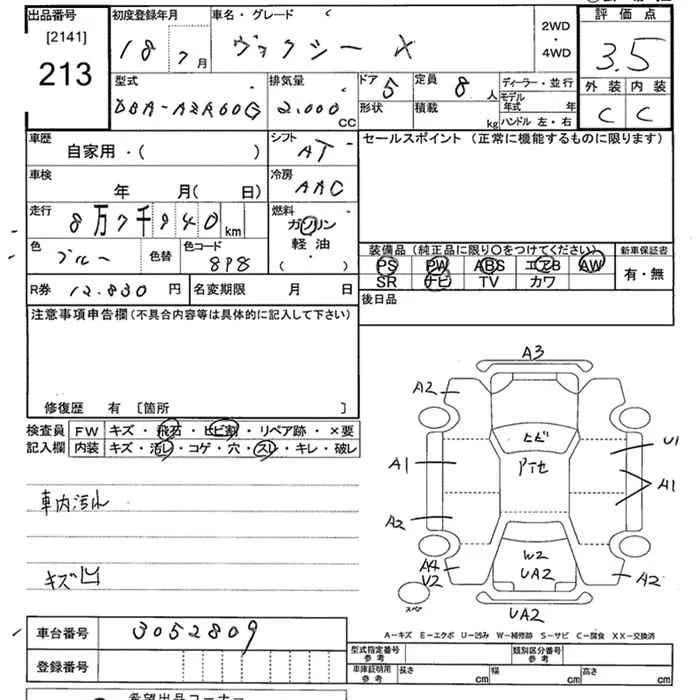 出品番号
[2141]
213
初度登録年月
18 7 月
車名・グレード
ヴォクシー X
2WD
・
4WD
評価点
3.5
型式
DBA-AZR60G
排気量
2.000
CC
ドア 5
形状
定員 8 人
積載 kg
ディーラー・並行
モデル
年式 年
ハンドル 左・右
外装 内装
C C
車歴
自家用・( )
シフト
AT
セールスポイント (正常に機能するものに限ります)
車検
年 月( 日)
冷房
AAC
走行
8万7千940 km
燃料
ガソリン
軽油
( ・ )
色
ブルー
色替
色コード
8P8
装備品(純正品に限り○をつけてください)
新車保証書
PS PW ABS エアB AW
SR ナビ TV カワ
有・無
R券 12.830 円
名変期限 月 日
後日品
注意事項申告欄(不具合内容等は具体的に記入して下さい)
修復歴 有 [箇所 ]
検査員
記入欄
FW キズ・飛石・ヒビ割・リペア跡・×要
内装 キズ・汚レ・コゲ・穴・スレ・キレ・破レ
車内汚れ
キズ凹
A3
A2
ヒビ
U1
A1
A1
A2
W2
UA2
A4
V2
A2
スペア
UA2
A−キズ E−エクボ U−凹み W−補修跡 S−サビ C−腐食 XX−交換済
車台番号 3052809
登録番号
型式指定番号
参考
類別区分番号
参考
車庫証明用
参考
長さ cm
幅 cm
高さ cm
希望出品コーナー